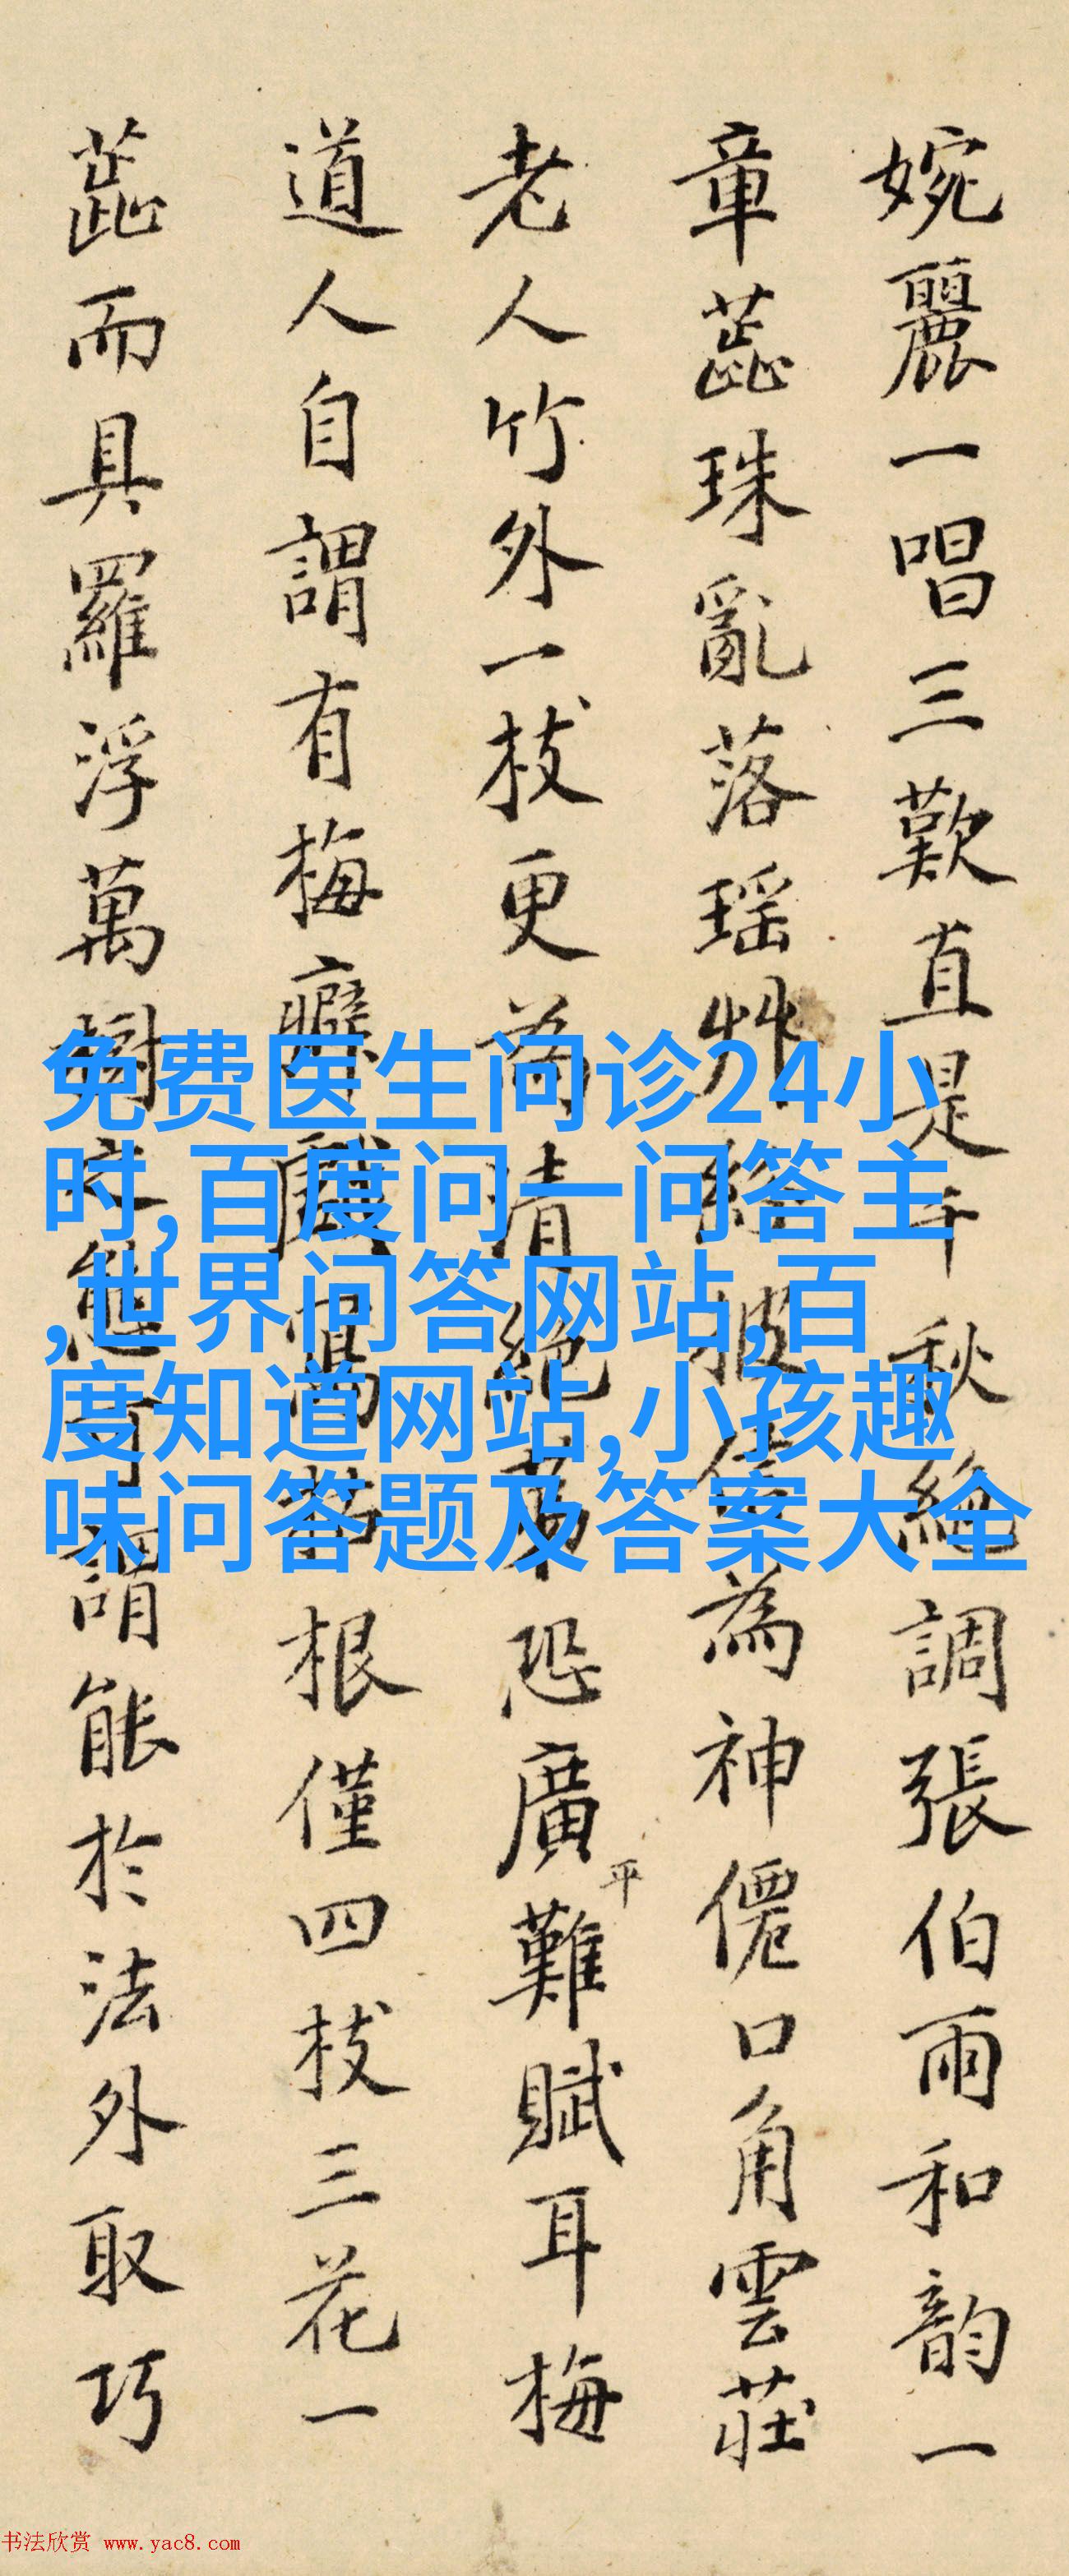 婉麗一唱三歎直是千秋絶調張伯雨和韵一
章蕋珠亂落瑶艸紛披信為神僊口角雲莊
老人竹外一枝更為清絶恐廣平難賦耳梅
道人自謂有梅癖戲寫根僅四枝三花一
蕋而具羅浮萬樹之態可謂能於法外取巧
免费医生问诊24小
时,百度问一问答主
,世界问答网站,百
度知道网站,小孩趣
味问答题及答案大全
书法欣赏 www.yac8.com